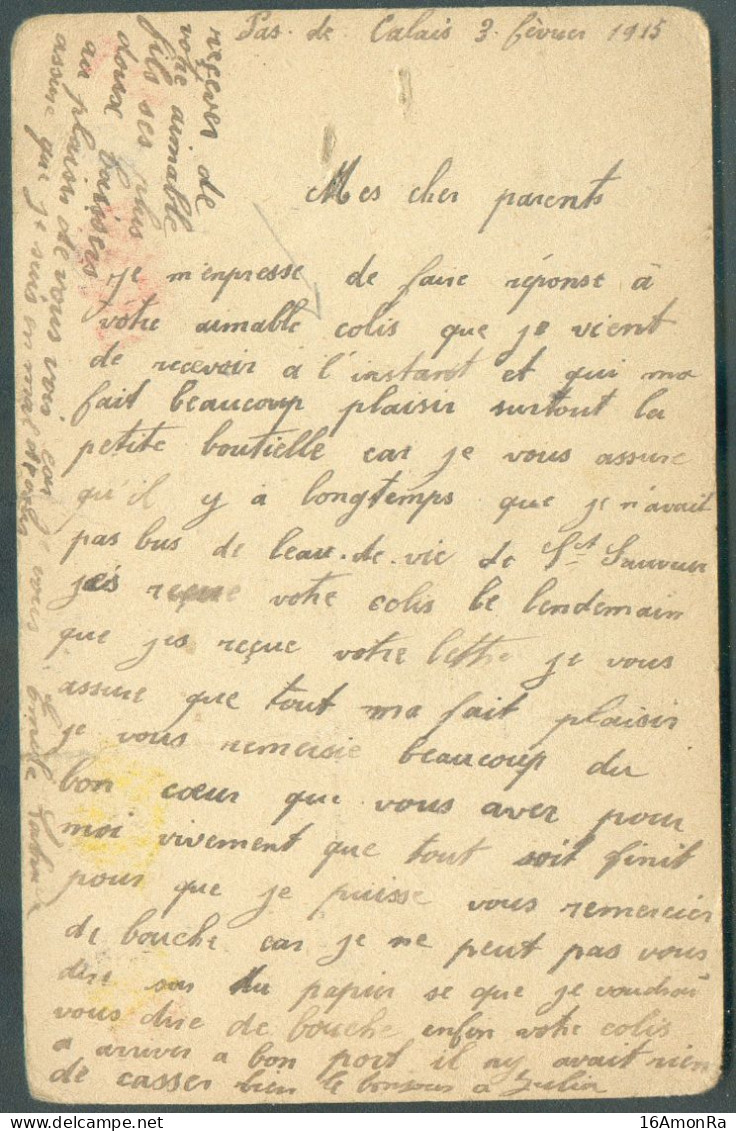 Pas. de Calais 3. fèvrier 1915
Mes cher parents
je m'enpresse de faire réponse à
votre aimable colis que je vient
de recevoir à l'instant et qui ma
fait beaucoup plaisir surtout la
petite boutielle car je vous assure
qu'il y à longtemps que je n'avait
pas bus de leau-de-vie de St Sauveur
jés reçue votre colis le lendemain
que jes reçue votre lettre je vous
assure que tout ma fait plaisir
je vous remersie beaucoup du
bon cœur que vous aver pour
moi vivement que tout soit finit
pour que je puisse vous remercier
de bouche car je ne peut pas vous
dire sur du papier se que je voudrai
vous dire de bouche enfin votre colis
a arriver a bon port il ny avait rien
de casser bien le bonjour a Julia
reçever de
votre aimable
fils ses plus
doux baissers
au plaisir de vous voir car je vous
assure que je suis
16AmonRa